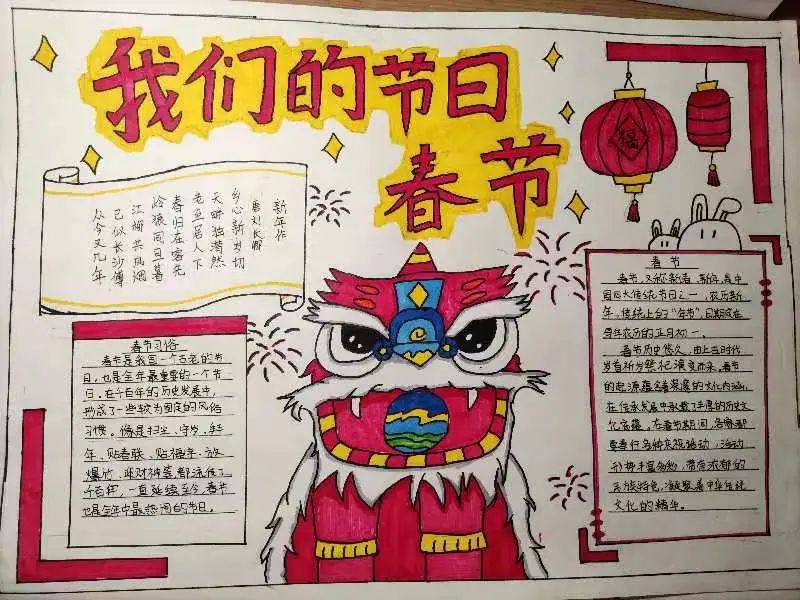 我们的节日
春节
新年作
唐刘长卿
乡心新岁切
天畔独潸然
老至居人下
春归在客先
岭猿同旦暮
江柳共风烟
已似长沙傅
从今又几年
福
春节习俗
春节是我国一个古老的节
日,也是全年最重要的一个节
日。在千百年的历史发展中,
形成了一些较为固定的风俗
习惯。像是扫尘、守岁、拜
年、贴春联、贴福字、放
爆竹、迎财神等都流传了
千百种,一直延续至今,春节
也是全年中最热闹的节日。
春节
春节,又称新春、新年,是中
国四大传统节日之一,农历新
年,传统上的“年节”,日期定在
每年农历的正月初一。
春节历史悠久,由上古时代
岁首祈岁祭祀演变而来,春节
的起源蕴含着深邃的文化内涵,
在传承发展中承载了丰厚的历史文
化底蕴。在春节期间,各地都
要举行各种庆祝活动,活动
形势丰富多彩,带有浓郁的
民族特色,凝聚着中华传统
文化的精华。